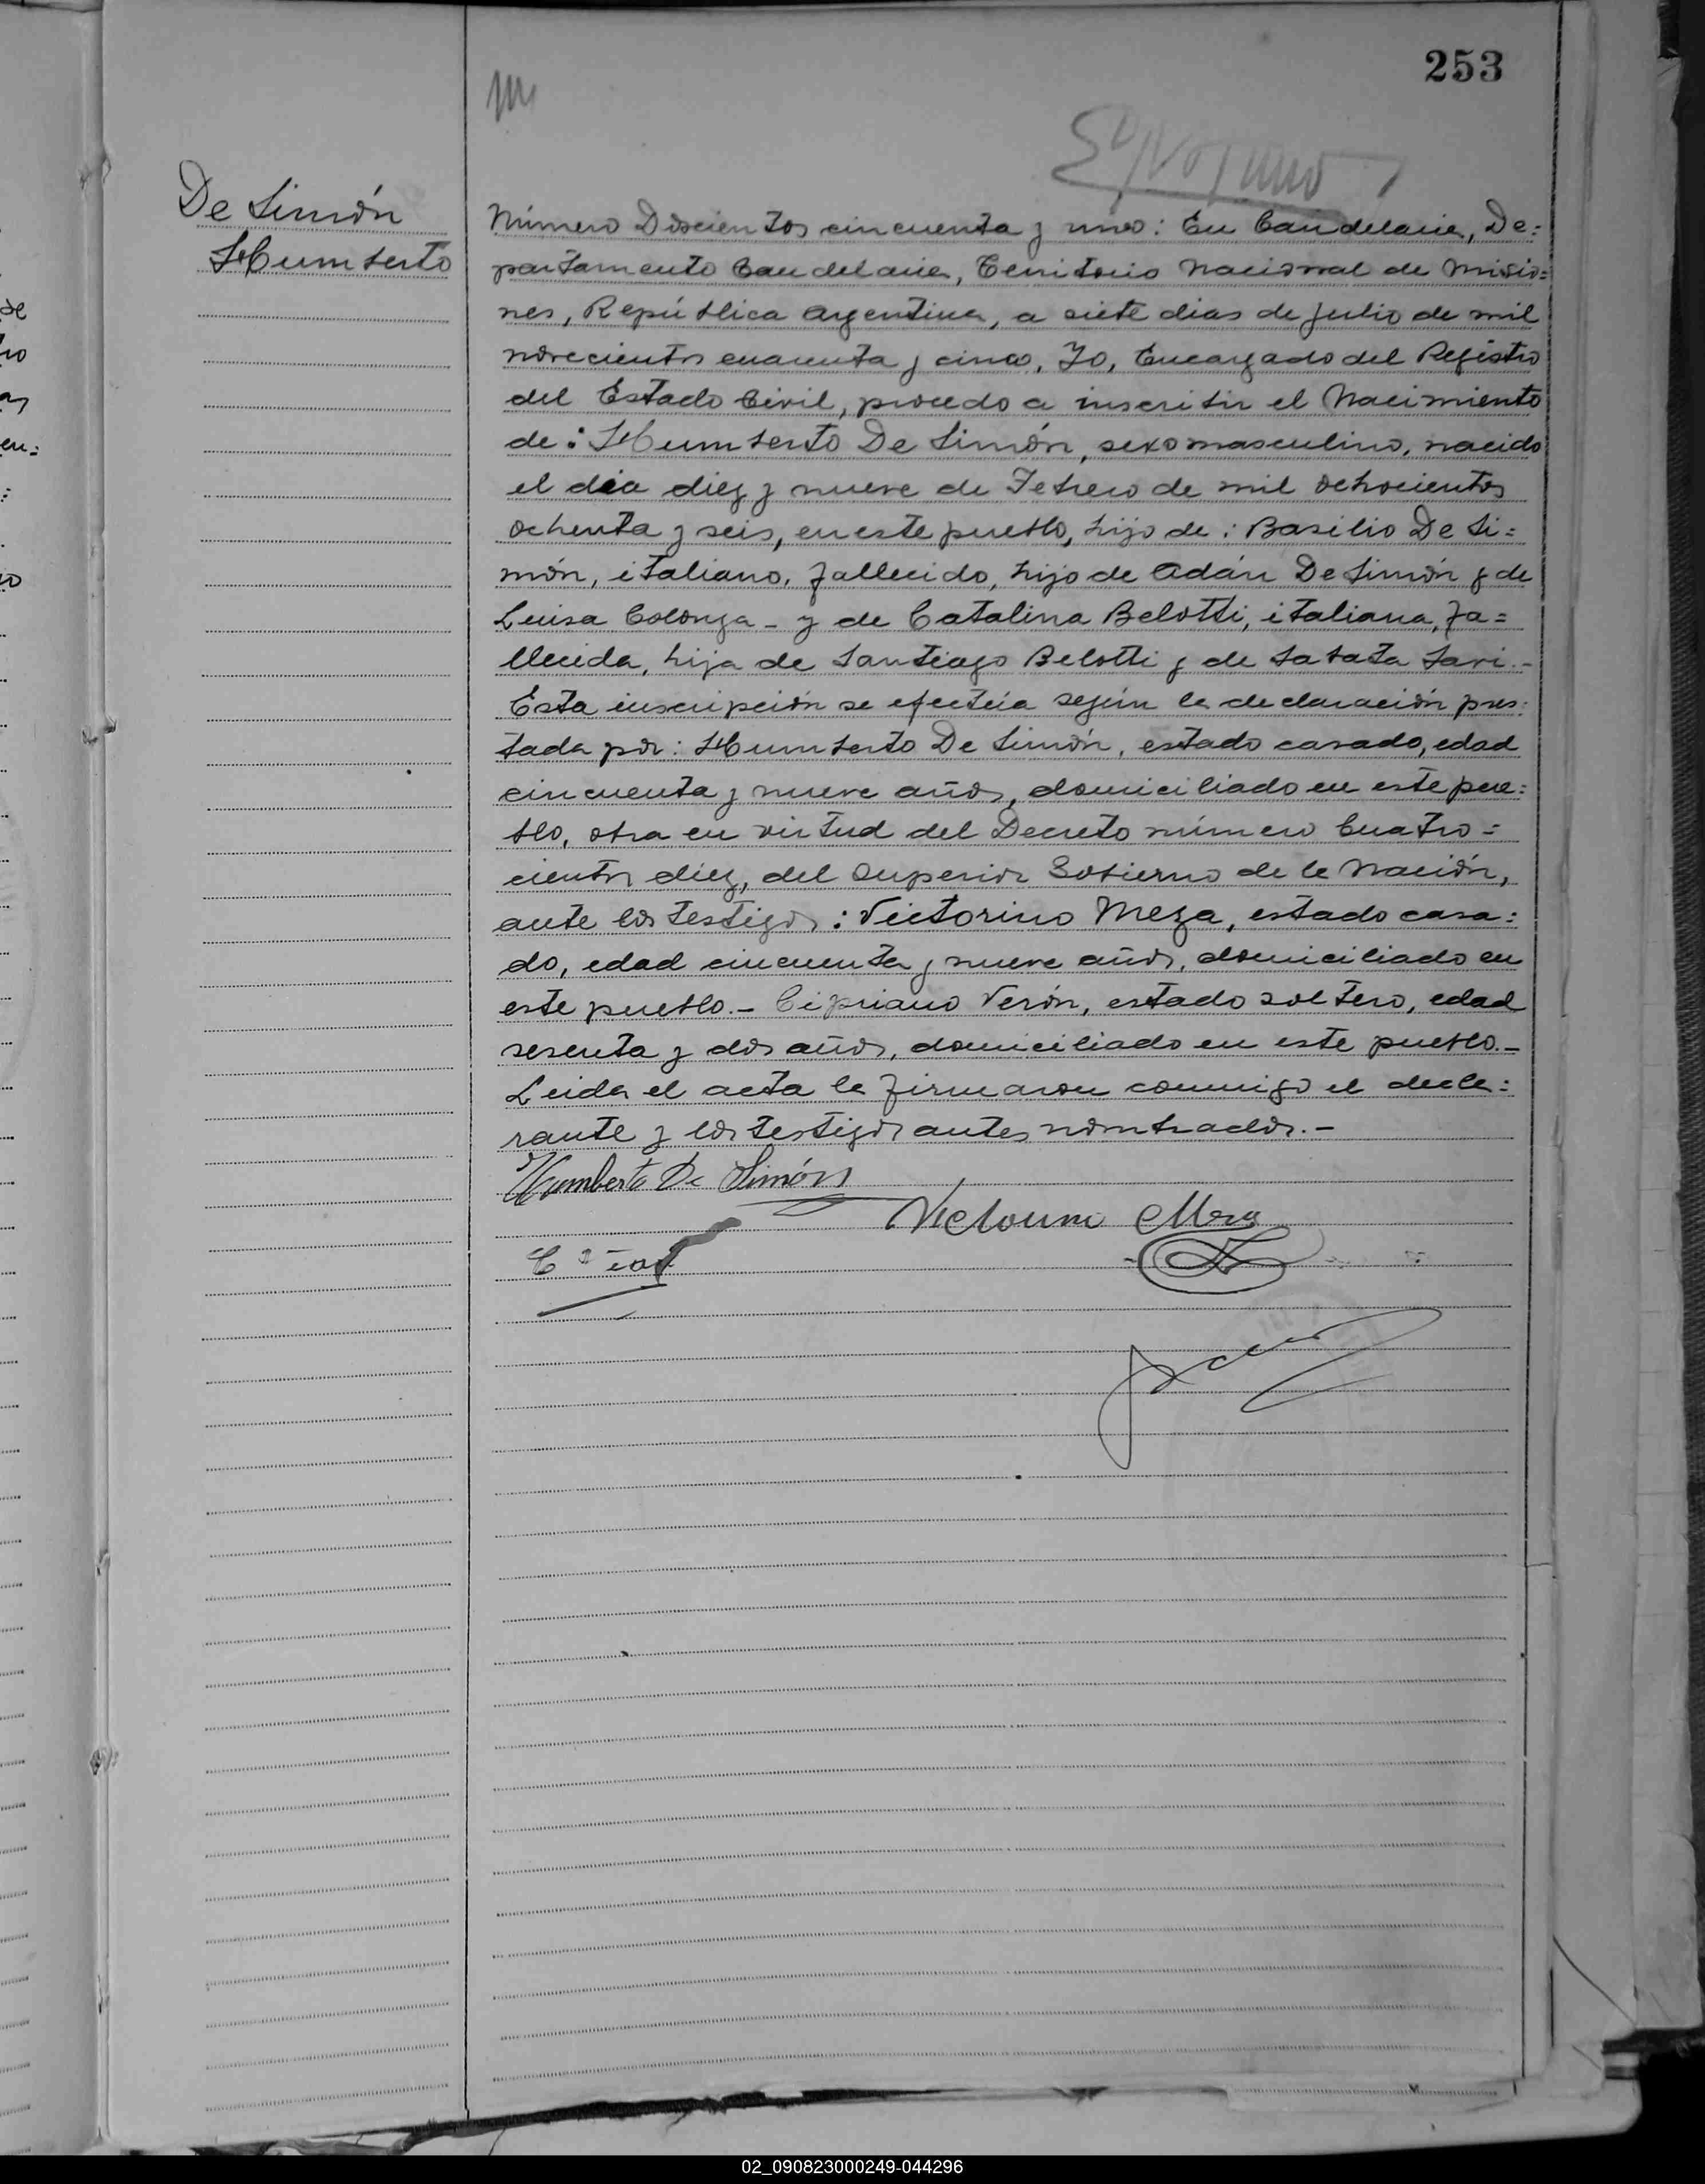 253
De Simón
Humberto
Número Doscientos cincuenta y uno: En Candelaria, De=
partamento Candelaria, Territorio Nacional de Misio=
nes, República Argentina, a siete dias de Julio de mil
novecientos cuarenta y cinco, Yo, Encargado del Registro
del Estado Civil, procedo a inscribir el Nacimiento
de: Humberto De Simón, sexo masculino, nacido
el dia diez y nueve de Febrero de mil ochocientos
ochenta y seis, en este pueblo, hijo de: Basilio De Si=
món, italiano, fallecido, hijo de Adán De Simón y de
Luisa Colonga - y de Catalina Belotti, italiana, fa=
llecida, hija de Santiago Belotti y de Sabata Savi.-
Esta inscripción se efectúa según la declaración pres:
tada por: Humberto De Simón, estado casado, edad
cincuenta y nueve años, domiciliado en este pue:
blo, obra en virtud del Decreto número Cuatro=
cientos diez, del Superior Gobierno de la Nación,
ante los testigos: Victorino Meza, estado casa:
do, edad cincuenta y nueve años, domiciliado en
este pueblo.- Cipriano Verón, estado soltero, edad
sesenta y dos años, domiciliado en este pueblo.-
Leida el acta la firmaron conmigo el decla:
rante y los testigos antes nombrados.-
Humberto De Simón
Victorino Meza
02_090823000249-044296